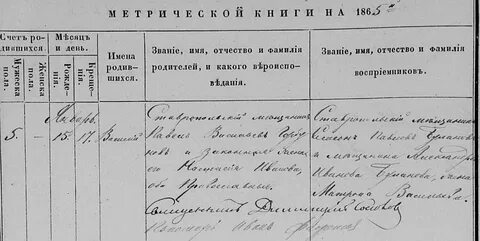 МЕТРИЧЕСКОЙ КНИГИ НА 1865й
Счетъ родившихся.
Мужеска пола.
Женска пола.
Мѣсяцъ и день.
Рожденія.
Крещенія.
Имена родившихся.
Званіе, имя, отчество и фамилія родителей, и какого вѣроисповѣданія.
Званіе, имя, отчество и фамилія воспріемниковъ.
Январь
5. — 15. 17. Василій
Ставропольскій мѣщанинъ
Павелъ Васильевъ
и законная жена
его Наталія Иванова,
оба Православные.
Ставропольскій мѣщанинъ
Павловъ
и мѣщанина
Иванова жена
Матрона Васильева.
Священникъ Димитрій
Пономарь Иванъ